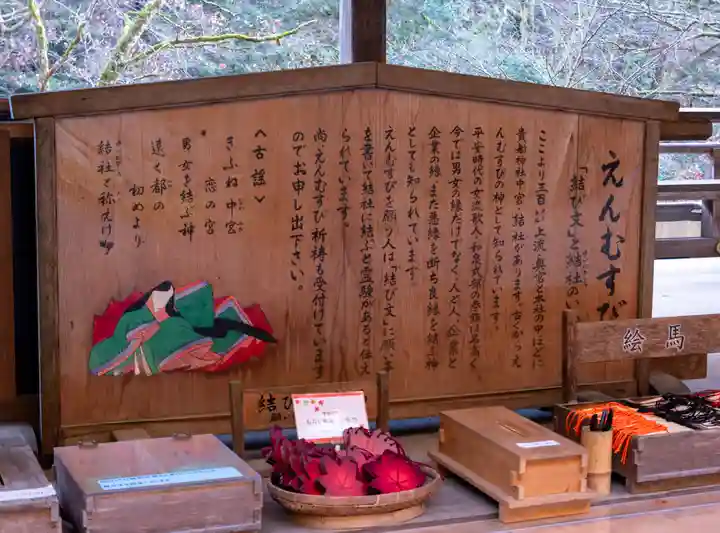 えんむすび
「結び文」と結社の
ここより三百㍍上流・奥宮と本社の中ほどに
貴船神社中宮「結社」があります。古くからえ
んむすびの神として知られています。
平安時代の女流歌人・和泉式部の参詣は名高く
今では男女の縁だけでなく、人と人、企業と
企業の縁、また悪縁を断ち良縁を結ぶ神
としても知られています。
えんむすびを願う人は「結び文」に願い事
を書いて結社に結ぶと霊験があると伝え
られています。
尚、えんむすび祈祷も受付けています
のでお申し出下さい。
〈古謡〉
きふね中宮
恋の宮
男女を結ぶ神
遠く都の
初めより
結社と称えけり
絵馬
結び